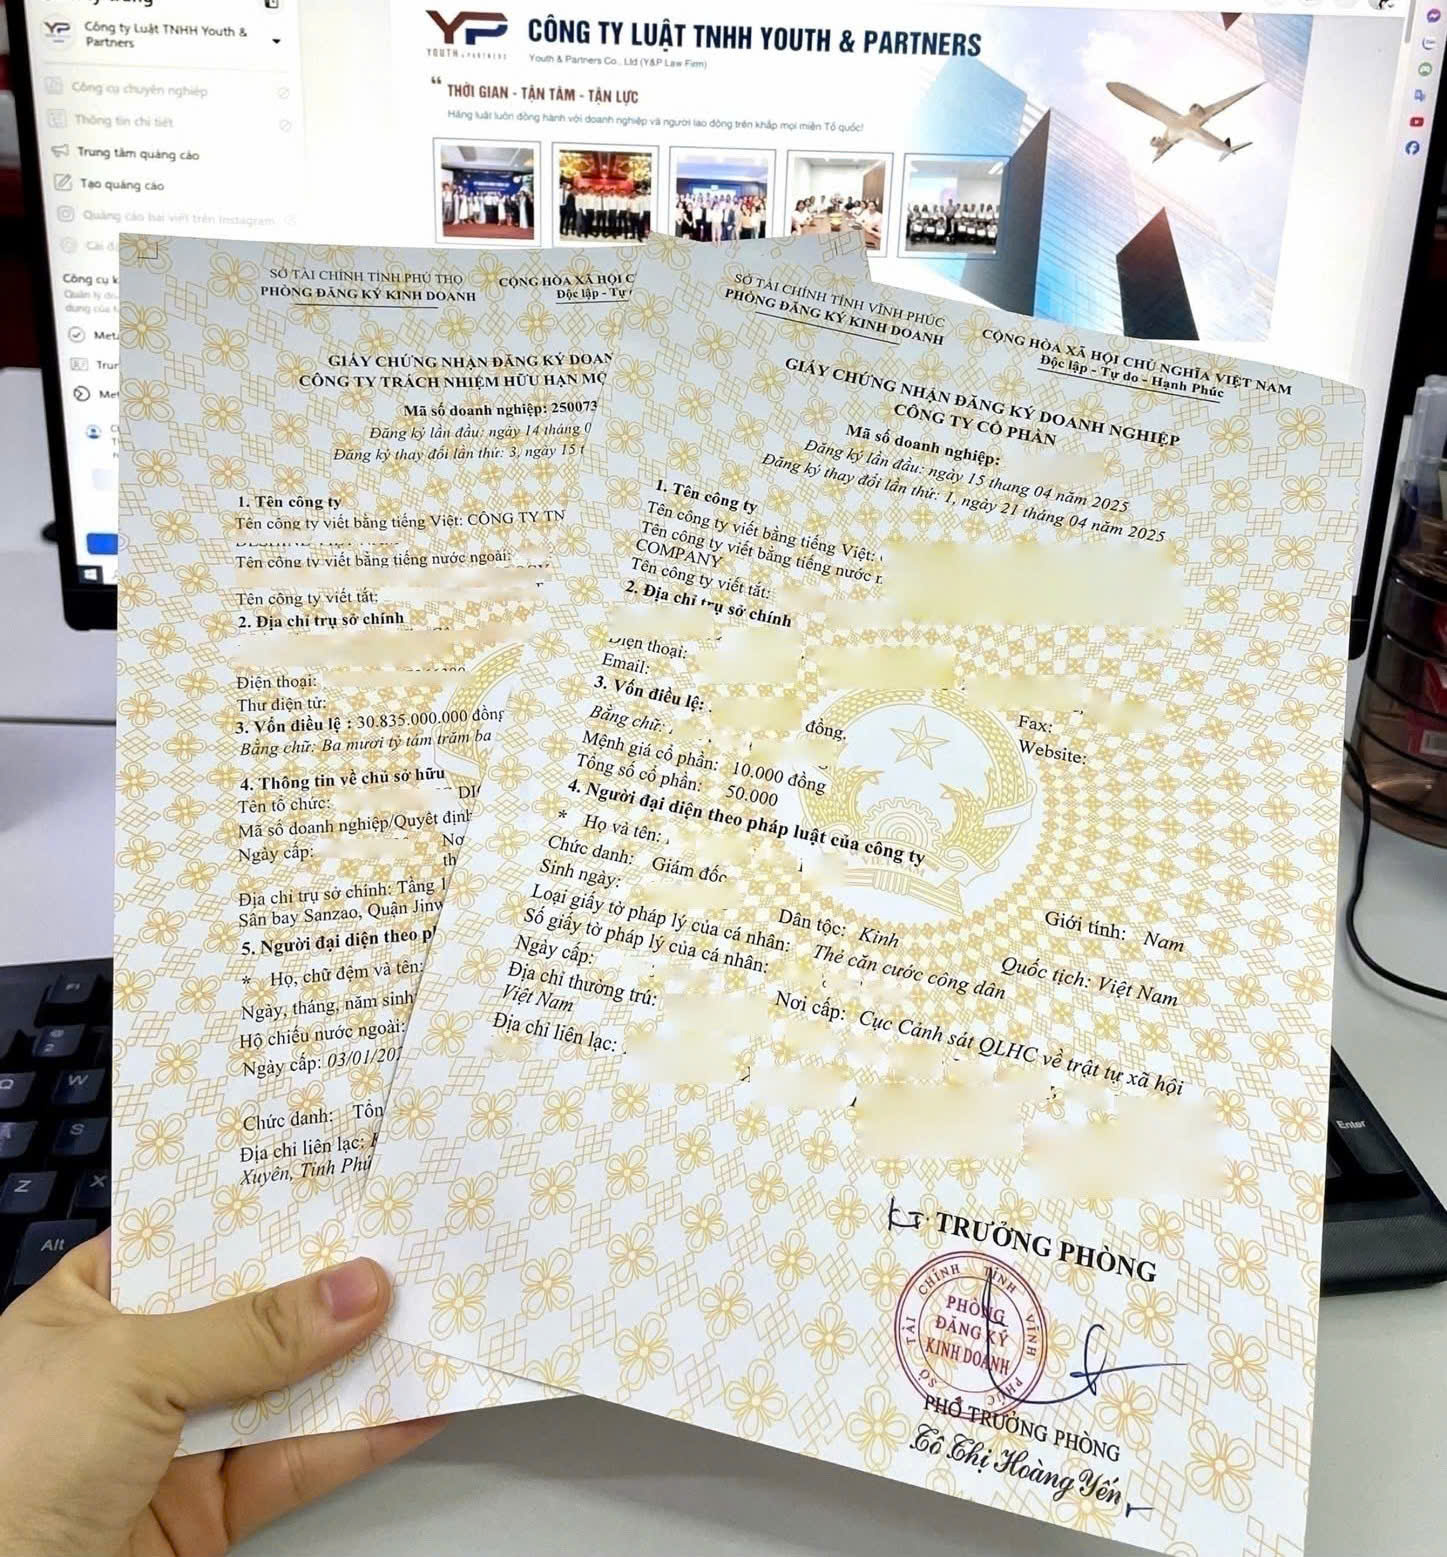 Công ty Luật TNHH Youth &
Partners
Công cụ chuyên nghiệp
Thông tin chi tiết
Trung tâm quảng cáo
Tạo quảng cáo
Quảng cáo bài viết trên Instagram
Công cụ
YP
YOUTH & PARTNERS
CÔNG TY LUẬT TNHH YOUTH & PARTNERS
Youth & Partners Co., Ltd (Y&P Law Firm)
“ THỜI GIAN - TẬN TÂM - TẬN LỰC
Hãng luật luôn đồng hành với doanh nghiệp và người lao động trên khắp mọi miền Tổ quốc!
SỞ TÀI CHÍNH TỈNH PHÚ THỌ
PHÒNG ĐĂNG KÝ KINH DOANH
CỘNG HÒA XÃ HỘI C
Độc lập - Tự
GIẤY CHỨNG NHẬN ĐĂNG KÝ DOAN
CÔNG TY TRÁCH NHIỆM HỮU HẠN MỘ
Mã số doanh nghiệp: 250073
Đăng ký lần đầu: ngày 14 tháng 0
Đăng ký thay đổi lần thứ: 3, ngày 15 t
1. Tên công ty
Tên công ty viết bằng tiếng Việt: CÔNG TY TN
Tên công ty viết bằng tiếng nước ngoài:
Tên công ty viết tắt:
2. Địa chỉ trụ sở chính
Điện thoại:
Thư điện tử:
3. Vốn điều lệ : 30.835.000.000 đồng
Bằng chữ: Ba mươi tỷ tám trăm ba
4. Thông tin về chủ sở hữu
Tên tổ chức:
Mã số doanh nghiệp/Quyết định
Ngày cấp:
Địa chỉ trụ sở chính: Tầng 1
Sân bay Sanzao, Quận Jinw
5. Người đại diện theo p
* Họ, chữ đệm và tên:
Ngày, tháng, năm sinh
Hộ chiếu nước ngoài:
Ngày cấp: 03/01/20
Chức danh: Tổn
Địa chỉ liên lạc:
Xuyên, Tỉnh Phú
SỞ TÀI CHÍNH TỈNH VĨNH PHÚC
PHÒNG ĐĂNG KÝ KINH DOANH
CỘNG HÒA XÃ HỘI CHỦ NGHĨA VIỆT NAM
Độc lập - Tự do - Hạnh Phúc
GIẤY CHỨNG NHẬN ĐĂNG KÝ DOANH NGHIỆP
CÔNG TY CỔ PHẦN
Mã số doanh nghiệp:
Đăng ký lần đầu: ngày 15 thang 04 năm 2025
Đăng ký thay đổi lần thứ: 1, ngày 21 tháng 04 năm 2025
1. Tên công ty
Tên công ty viết bằng tiếng Việt:
Tên công ty viết bằng tiếng nước
COMPANY
Tên công ty viết tắt:
2. Địa chỉ trụ sở chính
Điện thoại:
Email:
Fax:
Website:
3. Vốn điều lệ: đồng,
Bằng chữ:
Mệnh giá cổ phần: 10.000 đồng
Tổng số cổ phần: 50.000
4. Người đại diện theo pháp luật của công ty
* Họ và tên:
Giới tính: Nam
Chức danh: Giám đốc
Sinh ngày:
Dân tộc: Kinh
Quốc tịch: Việt Nam
Loại giấy tờ pháp lý của cá nhân: Thẻ căn cước công dân
Số giấy tờ pháp lý của cá nhân:
Ngày cấp:
Nơi cấp: Cục Cảnh sát QLHC về trật tự xã hội
Địa chỉ thường trú:
Việt Nam
Địa chỉ liên lạc:
KT. TRƯỞNG PHÒNG
SỞ TÀI CHÍNH TỈNH VĨNH PHÚC
PHÒNG
ĐĂNG KÝ
KINH DOANH
PHÓ TRƯỞNG PHÒNG
Tô Thị Hoàng Yến
VIỆT NAM
F1
W
S
Z
X
Alt
Enter